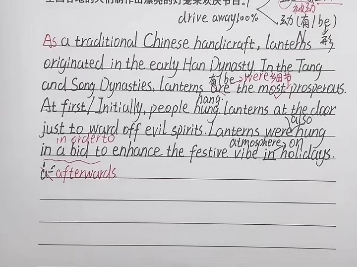 drive away 100%
动 (有/be)
As a traditional Chinese handicraft, lanterns
originated in the early Han Dynasty. In the Tang
有/be were
and Song Dynasties, lanterns are the most prosperous.
hang
At first/Initially, people hung lanterns at the door
also
just to ward off evil spirits. Lanterns were hung
in order to atmosphere on
in a bid to enhance the festive vibe in holidays.
afterwards